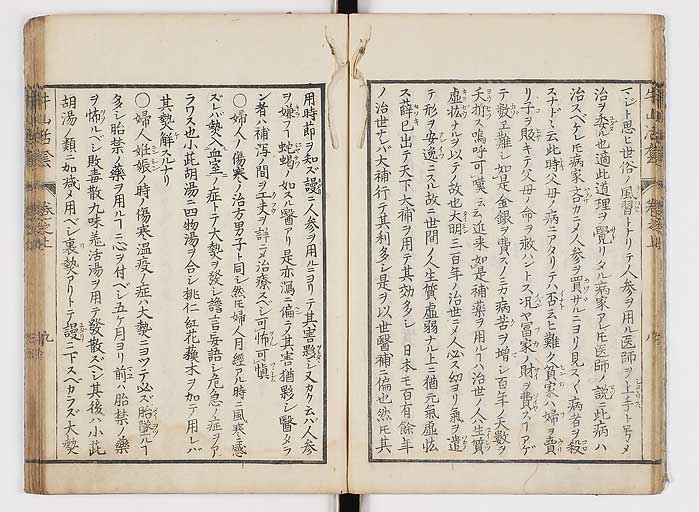 マント思ヒ世俗ノ風習トナリテ人参ヲ用ル医師ヲ上手ト号メ
治ヲ委也適此道理ヲ覺リタル病家アレ𪜈医師ノ説ニ此病ハ
治スベケレ𪜈病家吝カニメ人参ヲ買ザルニヨリ見ス〱病者ヲ殺
スナド云此時父母ノ病ニアタリテハ否云ヒ難ク貧家ハ婦ヲ賣
リ子ヲ賎キテ父母ノ命ヲ救ハントス况ヤ冨家ノ財ヲ費スヿアゲ
テ數立難シ如是金銀ヲ費スノミカ病苦ヲ増シ百年ノ天數ヲ
夭折ス嗚呼可嘆云云近来如是補薬ヲ用ルハ治世ノ人生質
虚怯ナルヲ以テノ故也大明三百年ノ治世ニメ人必ス幼ヨリ氣ヲ遣
テ形ヲ安逸ニスル故ニ世間ノ人生質虚弱ナル上ニ猶元氣虚怯
ス薛已出テ天下大補ヲ用テ其効多シ 日本モ百有餘年
ノ治世ナレバ大補行テ其利多シ是ヲ以世醫補ニ偏也然𪜈其
用時節ヲ知ズ謾ニ人参ヲ用ルニヨリテ其害夥シ又カク云バ人参
ヲ嫌フヿ蛇蝎ノ如スル醫アリ是亦瀉ニ偏テ其害猶夥シ醫タラ
ン者ハ補瀉ノ間ヲ工夫ヲ詳ニメ治療スベシ可怖可慎
〇婦人ノ傷寒ノ治方男子ト同シ然𪜈婦人月經アル時ニ風寒ニ感
ズレバ熱入血室ノ症トテ大熱ヲ發シ譫言妄語シ危急ノ症ヲア
ラワス也小茈胡湯ニ四物湯ヲ合シ桃仁紅花蘓木ヲ加テ用レバ
其熱解ルナリ
〇婦人妊娠ノ時ノ傷寒温疫ノ症ハ大熱ニヨツテ必ズ胎墜ルヿ
多シ胎禁ノ藥ヲ用ルヿ心ヲ付ベシ五ケ月ヨリ前ハ胎禁ノ藥
ヲ怖ルベシ敗毒散九味羗活湯ヲ用テ發散スベシ其後ハ小茈
胡湯ノ類ニ加减メ用ベシ裏熱アリトテ謾ニ下スベカラズ大熱